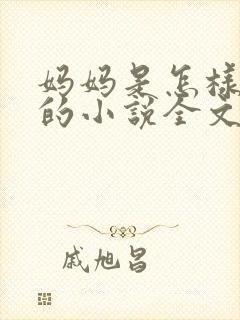 妈妈是怎样
的小说全文
戚旭昌